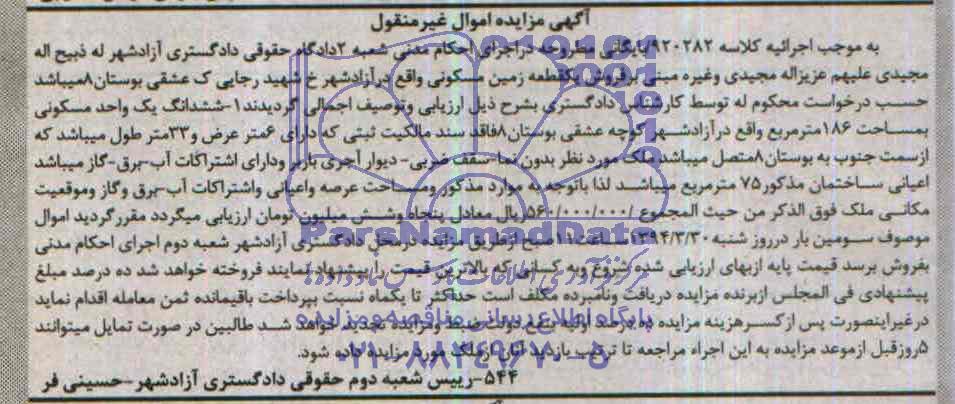 آگهی مزایده اموال غیرمنقول
به موجب اجرائیه کلاسه ۹۲۰۲۸۲/بایگانی مطروحه دراجرای احکام مدنی شعبه ۲دادگاه حقوقی دادگستری آزادشهر له ذبیح اله
مجیدی علیهم عزیزاله مجیدی وغیره مبنی برفروش یکقطعه زمین مسکونی واقع درآزادشهر خ شهید رجایی ک عشقی بوستان۸میباشد
حسب درخواست محکوم له توسط کارشناس دادگستری بشرح ذیل ارزیابی وتوصیف اجمالی گردیدند۱-ششدانگ یک واحد مسکونی
بمساحت ۱۸۶مترمربع واقع درآزادشهر کوچه عشقی بوستان۸فاقد سند مالکیت ثبتی که دارای ۶متر عرض و۳۳متر طول میباشد که
ازسمت جنوب به بوستان۸متصل میباشد ملک مورد نظر بدون نما-سقف ضربی- دیوار آجری باربر ودارای اشتراکات آب-برق-گاز میباشد
اعیانی ساختمان مذکور۷۵ مترمربع میباشد لذا باتوجه به موارد مذکور ومساحت عرصه واعیانی واشتراکات آب-برق وگاز وموقعیت
مکانی ملک فوق الذکر من حیث المجموع /۵۶۰/۰۰۰/۰۰۰ریال معادل پنجاه وشش میلیون تومان ارزیابی میگردد مقررگردید اموال
موصوف سومین بار درروز شنبه ۱۳۹۴/۳/۳۰ساعت۱۱صبح ازطریق مزایده درمحل دادگستری آزادشهر شعبه دوم اجرای احکام مدنی
بفروش برسد قیمت پایه ازبهای ارزیابی شده شروع وبه کسانی که بالاترین قیمت را پیشنهاد نمایند فروخته خواهد شد ده درصد مبلغ
پیشنهادی فی المجلس ازبرنده مزایده دریافت ونامبرده مکلف است حداکثر تا یکماه نسبت بپرداخت باقیمانده ثمن معامله اقدام نماید
درغیراینصورت پس ازکسرهزینه مزایده ده درصد اولیه بنفع دولت ضبط ومزایده تجدید خواهد شد طالبین در صورت تمایل میتوانند
۵روزقبل ازموعد مزایده به این اجراء مراجعه تا ترتیب بازدید آنان ازملک مورد مزایده داده شود.
۵۴۴-رییس شعبه دوم حقوقی دادگستری آزادشهر-حسینی فر
ParsNamadData
پایگاه اطلاع رسانی مناقصه و مزایده
۰۲۱-۸۸۳۴۹۶۷۰-۵